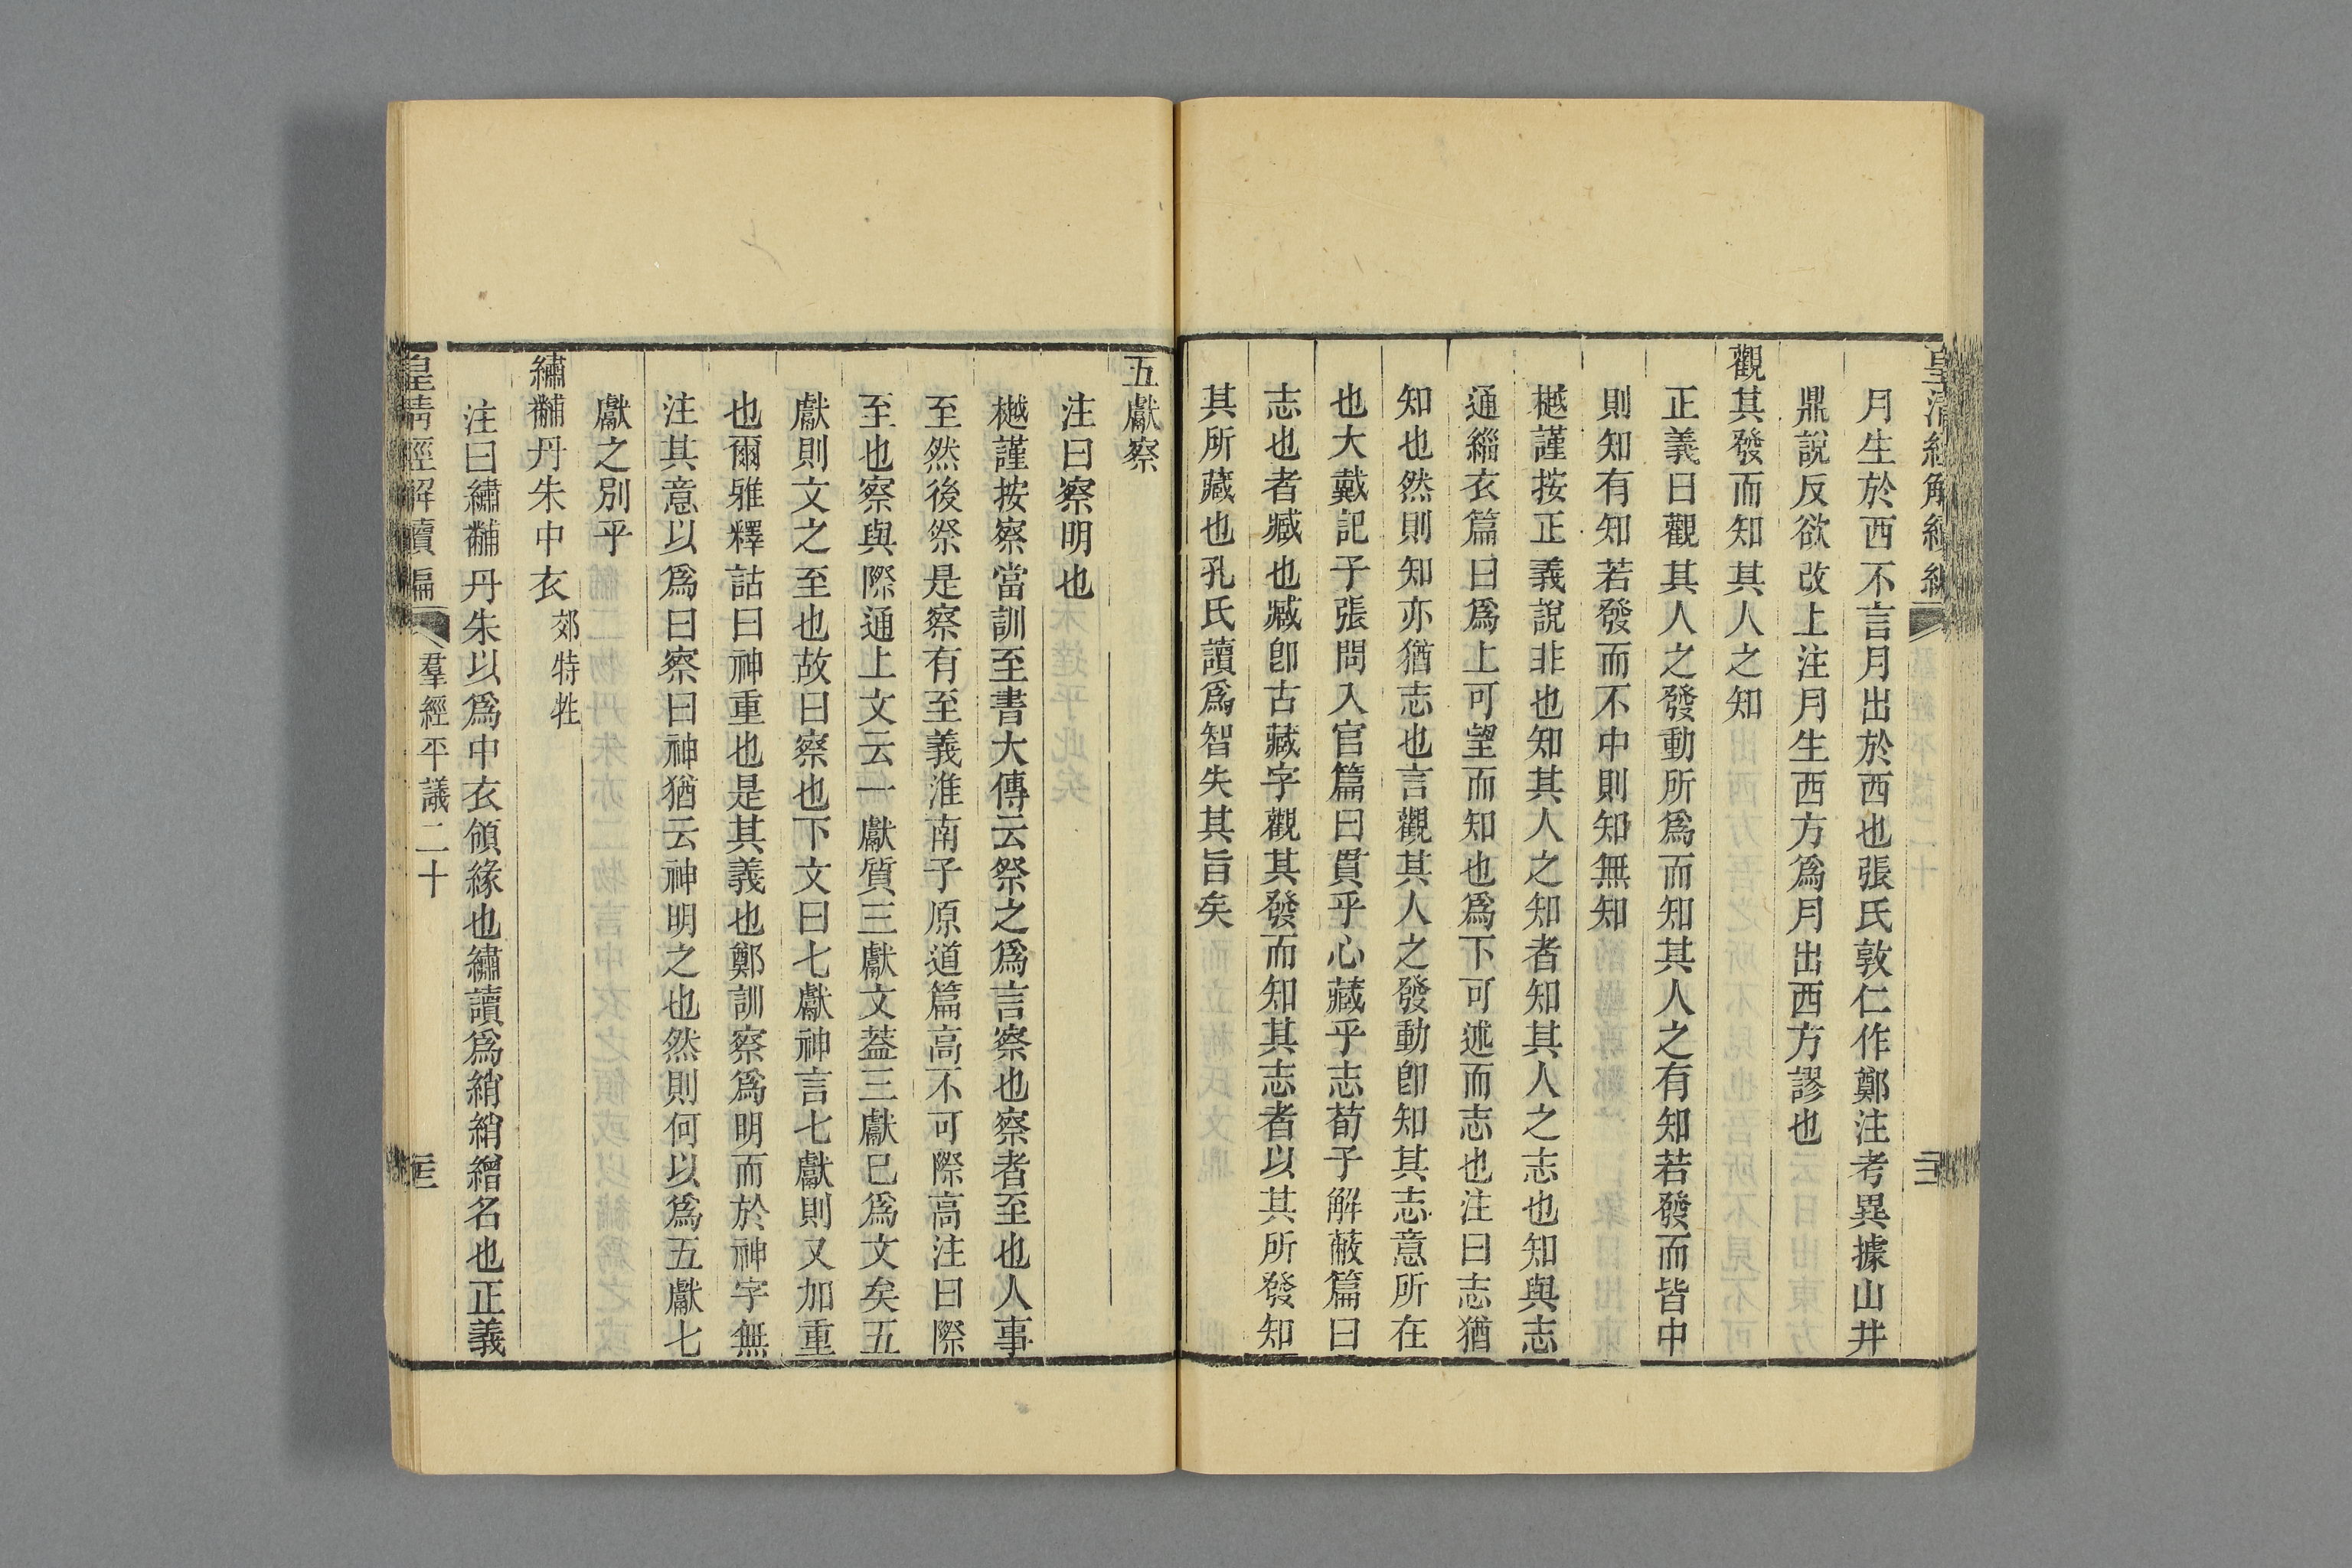 月生於西不言月出於西也張氏敦仁作鄭注考異據山井
鼎說反欲改上注月生西方爲月出西方謬也
觀其發而知其人之知
正義曰觀其人之發動所爲而知其人之有知若發而皆中
則知有知若發而不中則知無知
樾謹按正義說非也知其人之知者知其人之志也知與志
通緇衣篇曰爲上可望而知也爲下可述而志也注曰志猶
知也然則知亦猶志也言觀其人之發動卽知其志意所在
也大戴記子張問入官篇曰貫乎心藏乎志荀子解蔽篇曰
志也者臧也臧卽古藏字觀其發而知其志者以其所發知
其所藏也孔氏讀爲智失其旨矣
五獻察
注曰察明也
樾謹按察當訓至書大傳云祭之爲言察也察者至也人事
至然後祭是察有至義淮南子原道篇高不可際高注曰際
至也察與際通上文云一獻質三獻文蓋三獻已爲文矣五
獻則文之至也故曰察也下文曰七獻神言七獻則又加重
也爾雅釋詁曰神重也是其義也鄭訓察爲明而於神字無
注其意以爲曰察曰神猶云神明之也然則何以爲五獻七
獻之別乎
繡黼丹朱中衣 郊特牲
注曰繡黼丹朱以爲中衣領緣也繡讀爲綃綃繒名也正義
皇清經解續編 羣經平議二十